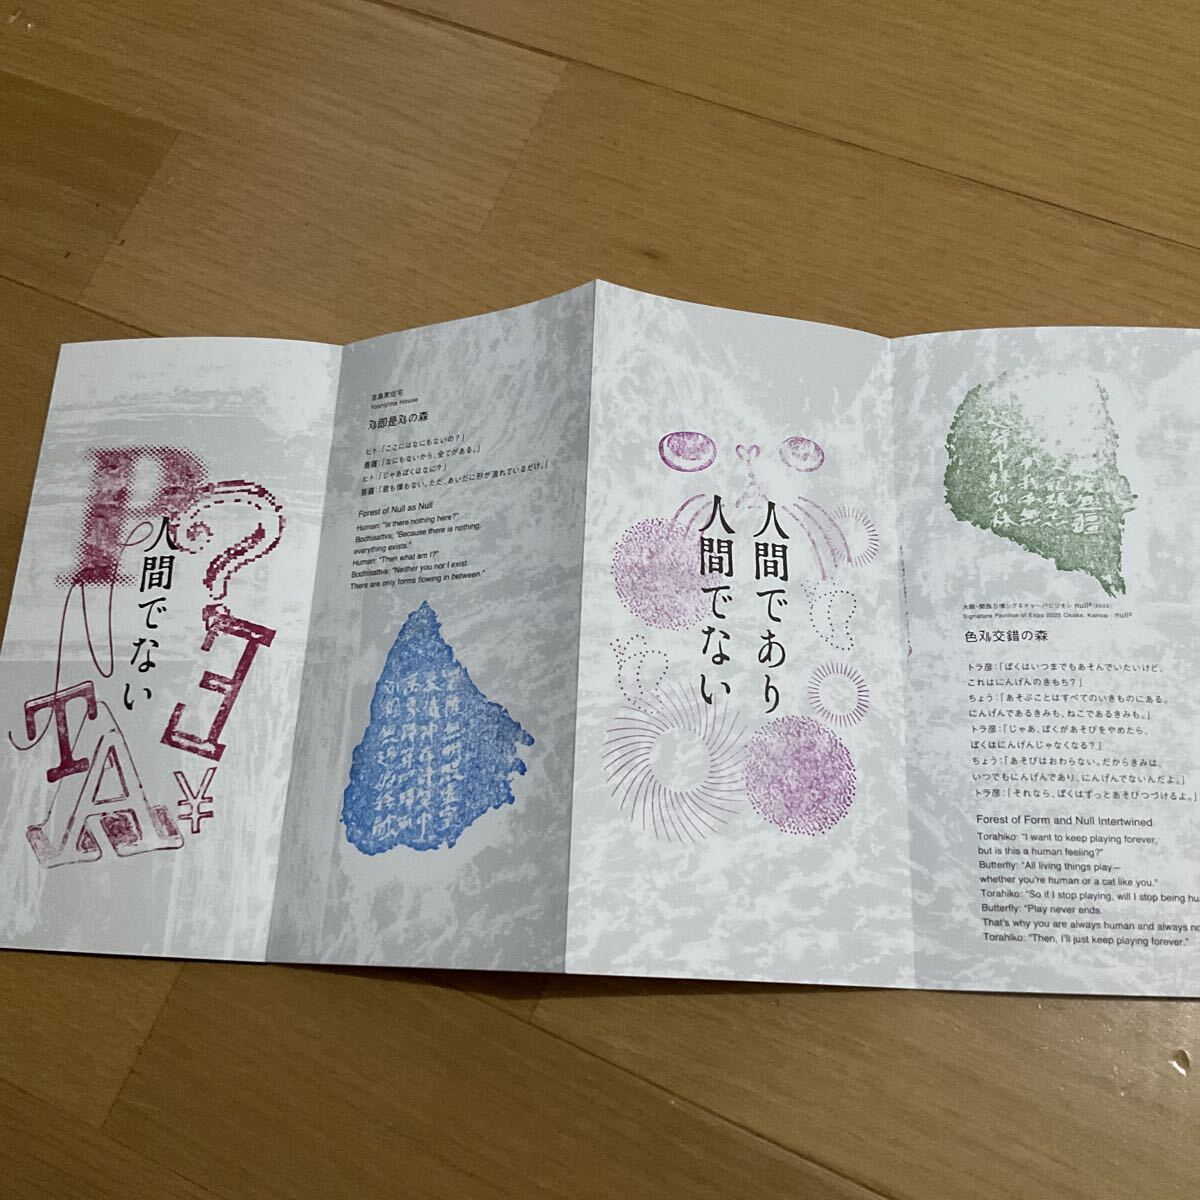 P
?
E
T
A
¥
人間でない
吉島家住宅
Yoshijima House
ヌル即是ヌルの森
ヒト:「ここにはなにもないの?」
菩薩:「なにもないから、全てがある。」
ヒト:「じゃあぼくはなに?」
菩薩:「君も僕もない。ただ、あいだに形が流れているだけ。」
Forest of Null as Null
Human: "Is there nothing here?"
Bodhisattva: "Because there is nothing,
everything exists."
Human: "Then what am I?"
Bodhisattva: "Neither you nor I exist.
There are only forms flowing in between."
人間であり
人間でない
大阪・関西万博シグネチャーパビリオン null²(ヌルヌル)
Signature Pavilion of Expo 2025 Osaka, Kansai : null²
色ヌル交錯の森
トラ彦:「ぼくはいつまでもあそんでいたいけど、
これはにんげんのきもち?」
ちょう:「あそぶことはすべてのいきものにある。
にんげんであるきみも、ねこであるきみも。」
トラ彦:「じゃあ、ぼくがあそびをやめたら、
ぼくはにんげんじゃなくなる?」
ちょう:「あそびはおわらない。だからきみは、
いつでもにんげんであり、にんげんでないんだよ。」
トラ彦:「それなら、ぼくはずっとあそびつづけるよ。」
Forest of Form and Null Intertwined
Torahiko: "I want to keep playing forever,
but is this a human feeling?"
Butterfly: "All living things play—
whether you're human or a cat like you."
Torahiko: "So if I stop playing, will I stop being hu
Butterfly: "Play never ends.
That's why you are always human and always no
Torahiko: "Then, I'll just keep playing forever."